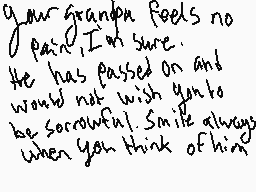 your grandpa feels no
pain, I'm sure.
He has passed on and
would not wish you to
be sorrowful. Smile always
when you think of him